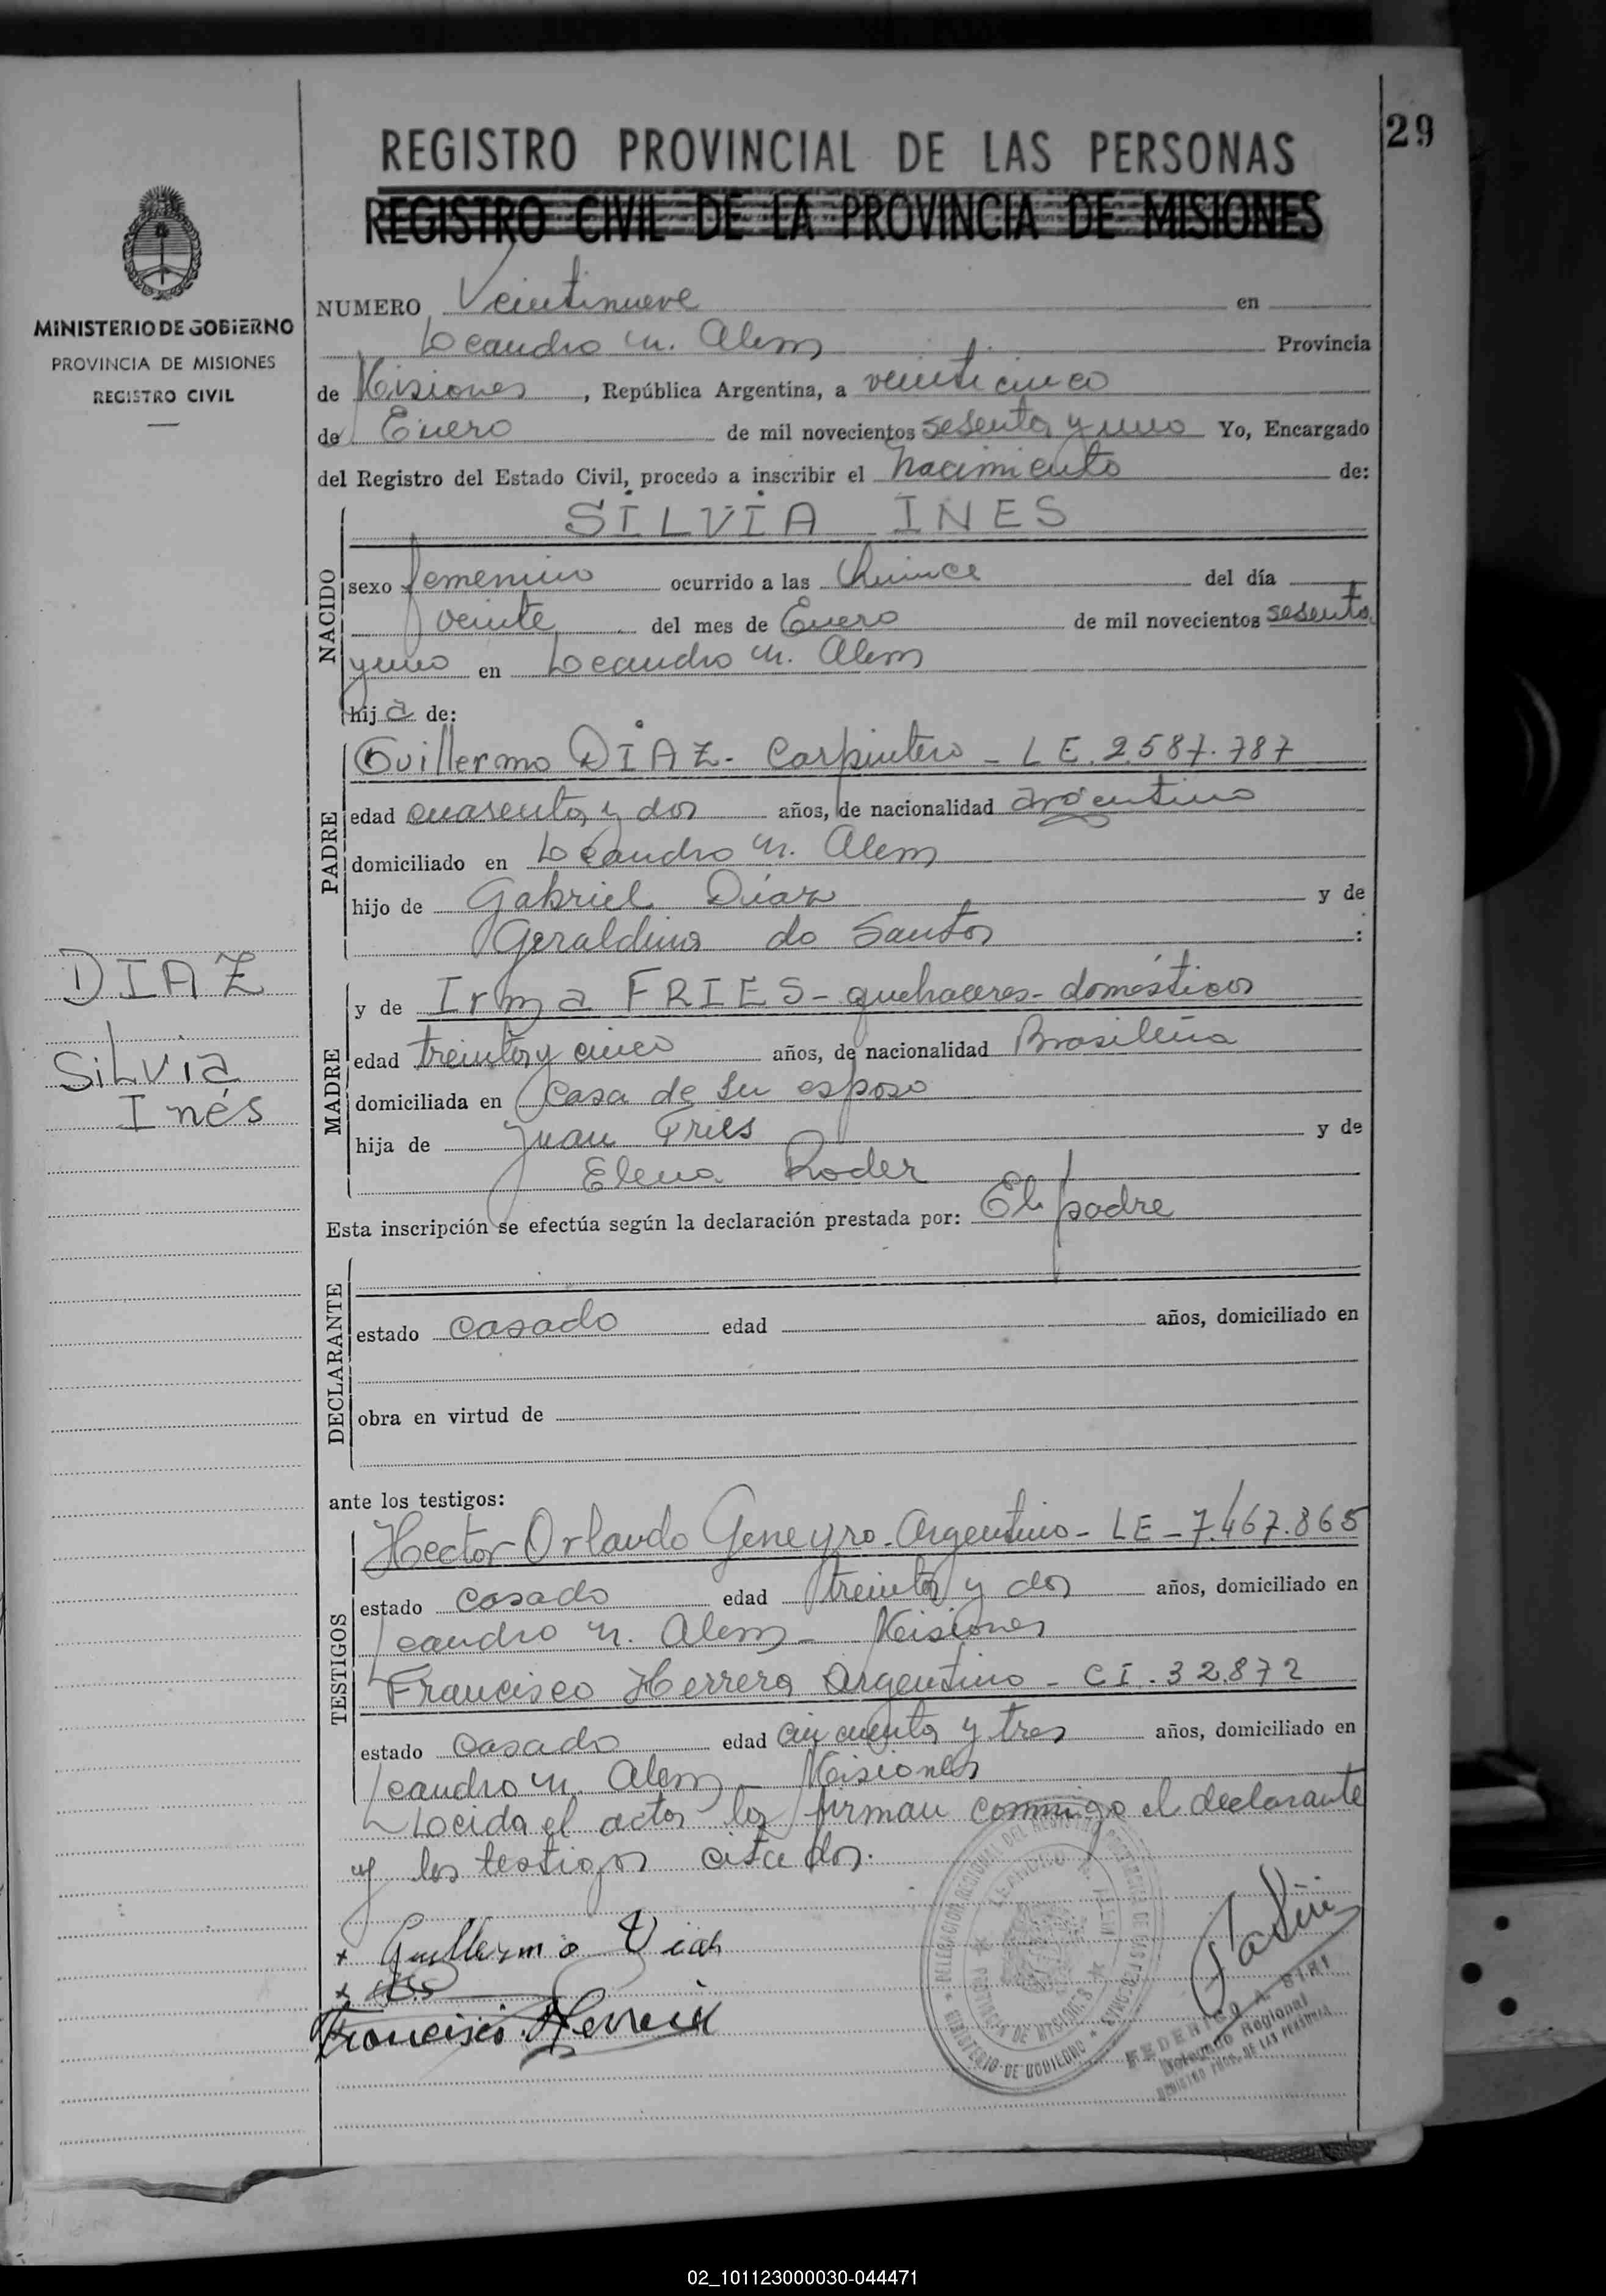 29
REGISTRO PROVINCIAL DE LAS PERSONAS
REGISTRO CIVIL DE LA PROVINCIA DE MISIONES
MINISTERIO DE GOBIERNO
PROVINCIA DE MISIONES
REGISTRO CIVIL
NUMERO Veintinueve en
Leandro N. Alem Provincia
de Misiones, República Argentina, a veinticinco
de Enero de mil novecientos sesenta y uno Yo, Encargado
del Registro del Estado Civil, procedo a inscribir el nacimiento de:
SILVIA INES
NACIDO
sexo femenino ocurrido a las Quince del día
veinte del mes de Enero de mil novecientos sesenta
y uno en Leandro N. Alem
hija de:
PADRE
Guillermo DIAZ - Carpintero - LE. 2.587.787
edad cuarenta y dos años, de nacionalidad argentino
domiciliado en Leandro N. Alem
hijo de Gabriel Diaz y de
Geraldina do Santos :
DIAZ
Silvia
Inés
MADRE
y de Irma FRIES - quehaceres - domésticos
edad treinta y cinco años, de nacionalidad Brasileña
domiciliada en Casa de su esposo
hija de Juan Fries y de
Elena Roder
Esta inscripción se efectúa según la declaración prestada por: El padre
DECLARANTE
estado casado edad años, domiciliado en
obra en virtud de
ante los testigos:
TESTIGOS
Hector Orlando Geneyro - Argentino - LE - 7.467.865
estado casado edad treinta y dos años, domiciliado en
Leandro N. Alem - Misiones
Francisco Herrera Argentino - CI. 32.872
estado casado edad cincuenta y tres años, domiciliado en
Leandro N. Alem - Misiones
Lecida el acta la firman conmigo el declarante
y los testigos citados.
x Guillermo Diaz
x
Francisco Herrera
DELEGACION REGIONAL DEL REGISTRO PROVINCIAL DE LAS PERSONAS
LEANDRO N. ALEM
PROVINCIA DE MISIONES
MINISTERIO DE GOBIERNO
FEDERICO A. SIRI
Delegado Regional
REGISTRO PROV. DE LAS PERSONAS
02_101123000030-044471